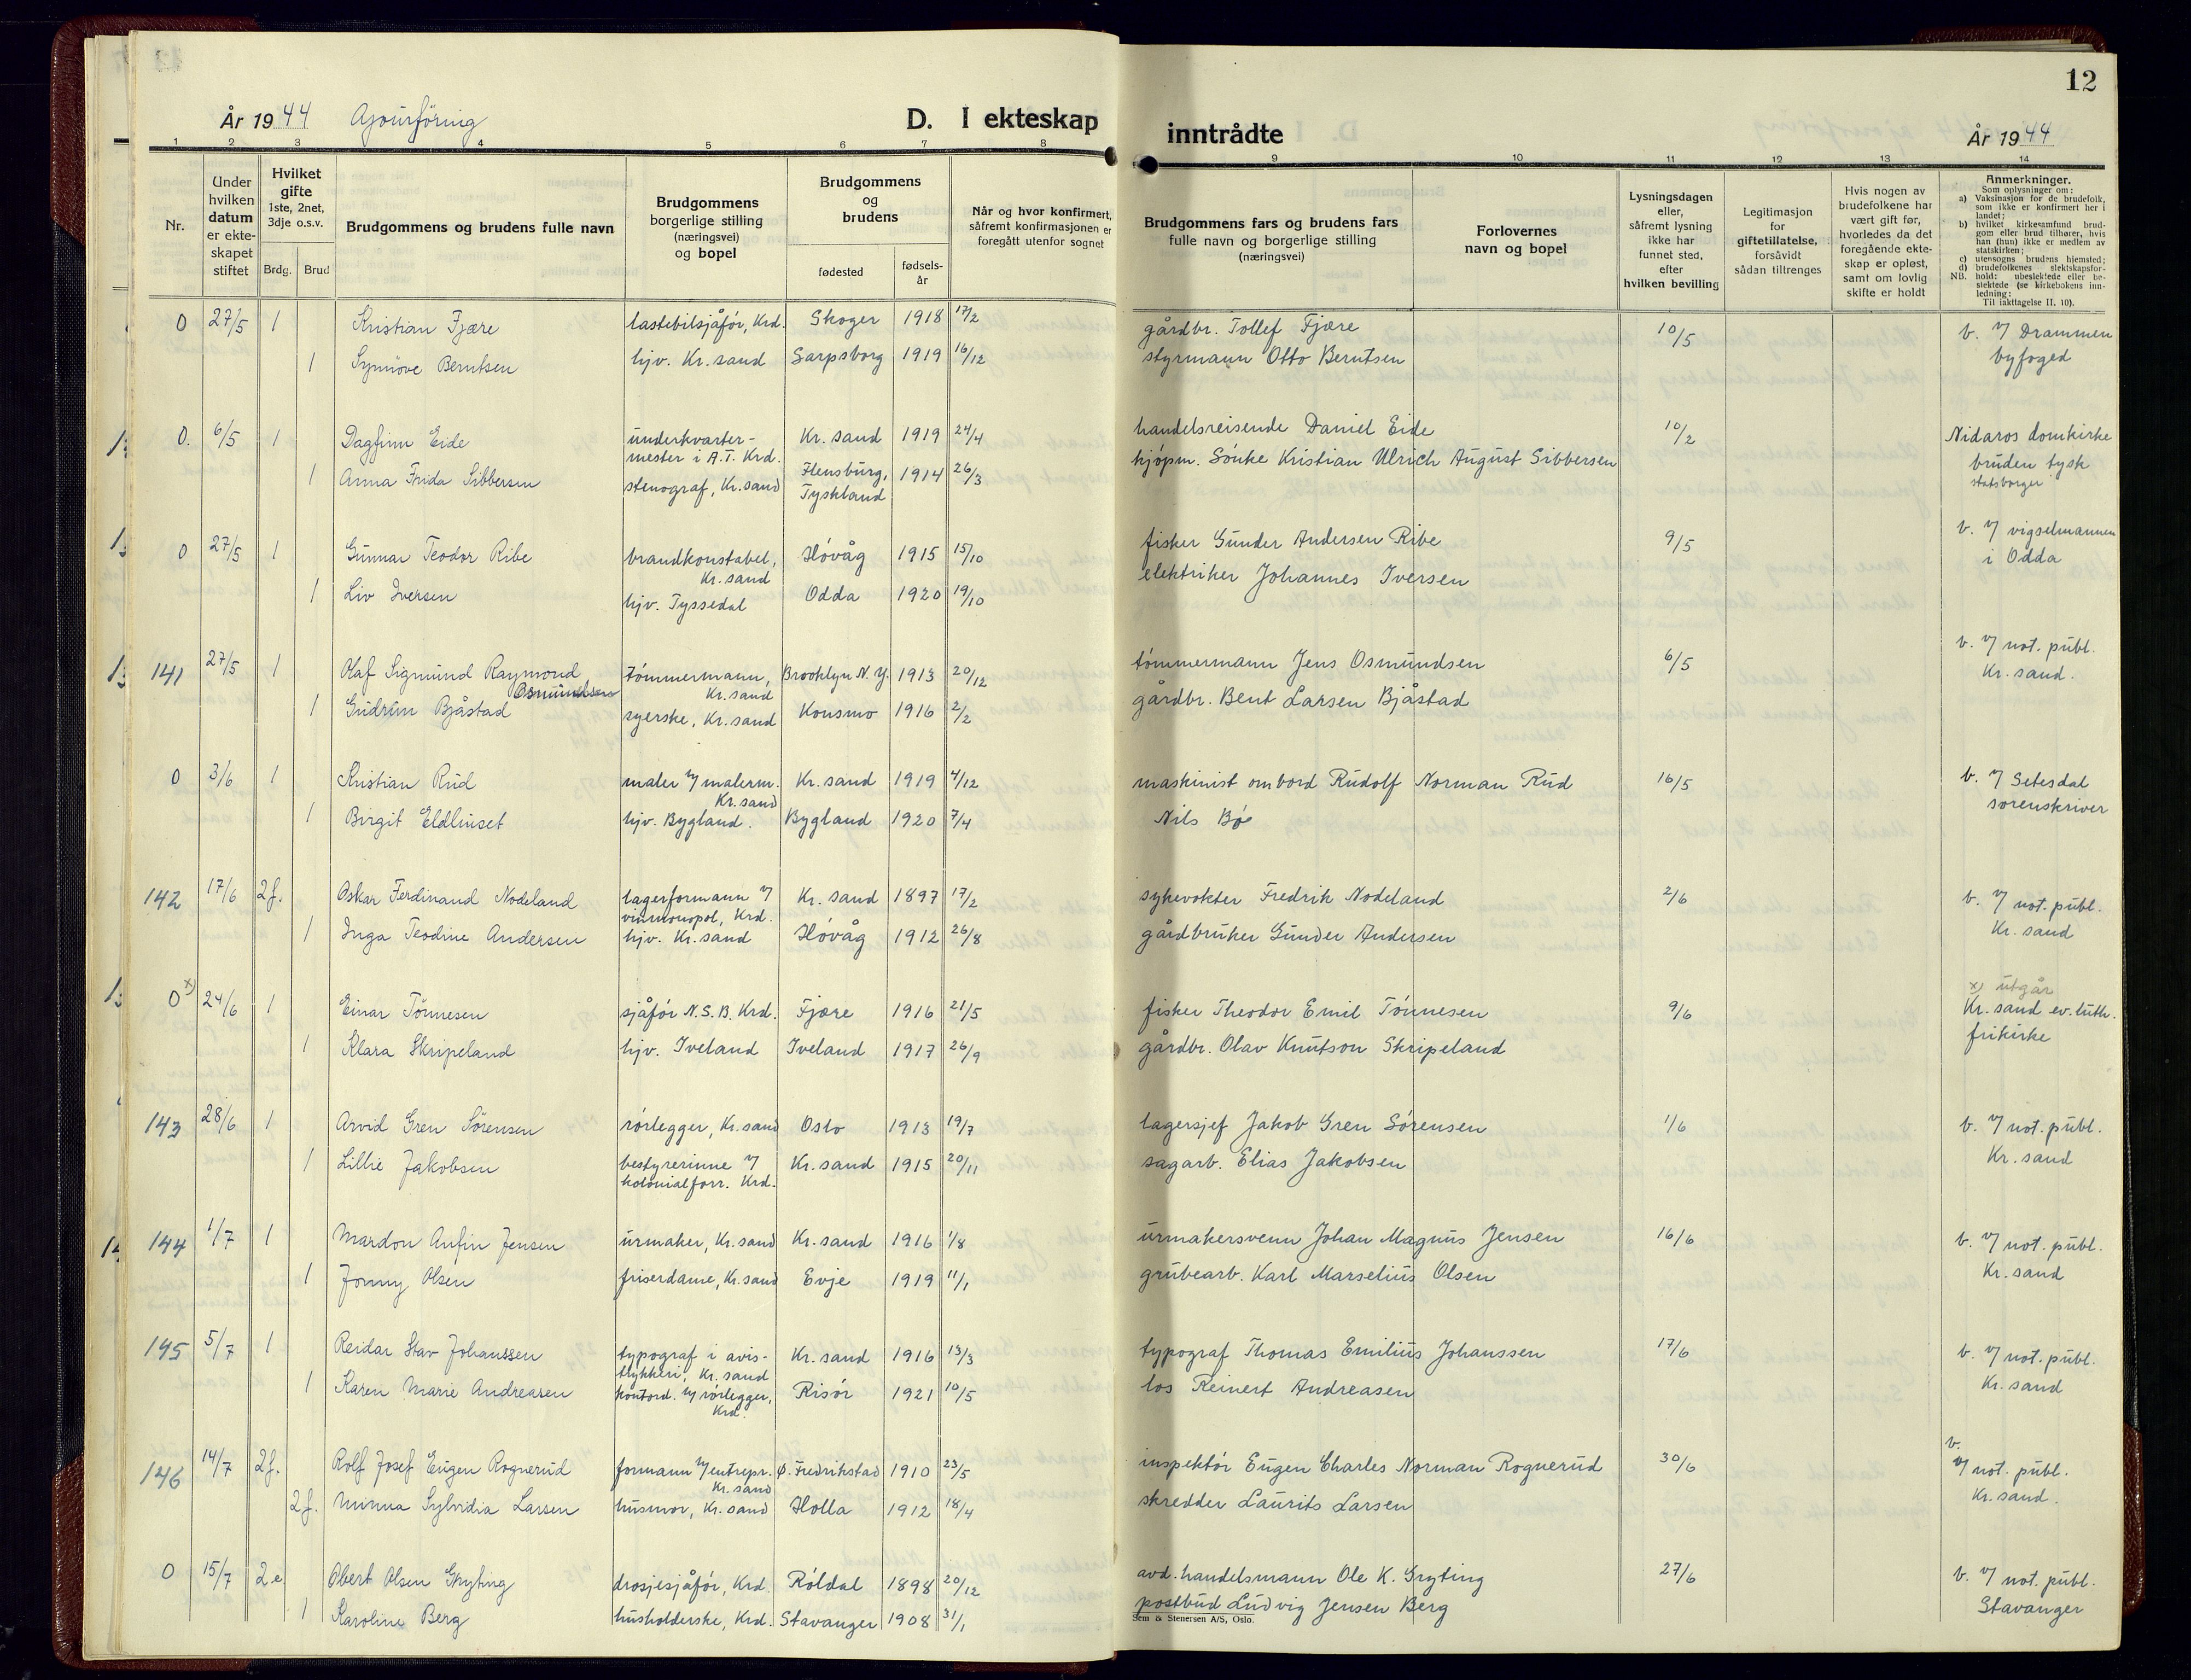 12
År 1944 Ajourføring
D. I ekteskap inntrådte
År 1944
1 2 3 4 5 6 7 8 9 10 11 12 13 14
Nr.
Under hvilken datum er ekteskapet stiftet
Hvilket gifte 1ste, 2net, 3dje o.s.v.
Brdg. Brud
Brudgommens og brudens fulle navn
Brudgommens borgerlige stilling (næringsvei) og bopel
Brudgommens og brudens
fødested
fødsels-år
Når og hvor konfirmert, såfremt konfirmasjonen er foregått utenfor sognet
Brudgommens fars og brudens fars fulle navn og borgerlige stilling (næringsvei)
Forlovernes navn og bopel
Lysningsdagen eller, såfremt lysning ikke har funnet sted, efter hvilken bevilling
Legitimasjon for giftetillatelse, forsåvidt sådan tiltrenges
Hvis nogen av brudefolkene har vært gift før, hvorledes da det foregående ekteskap er opløst, samt om lovlig skifte er holdt
Anmerkninger.
Som oplysninger om:
a) Vaksinasjon for de brudefolk, som ikke er konfirmert her i landet;
b) hvilket kirkesamfund brudgom eller brud tilhører, hvis han (hun) ikke er medlem av statskirken;
c) utensogns brudens hjemsted;
d) brudefolkenes slektskapsforhold: ubeslektede eller beslektede (se kirkebokens innledning:
NB. Til iakttagelse II. 10).
0 27/5 1 Kristian Fjære lastebilsjåfór, Krd. Skoger 1918 17/2 gårdbr. Tollef Fjære 10/5 b. v/ Drammen
1 Synnöve Berntsen hjv. Kr. sand Sarpsborg 1919 16/12 styrmann Otto Berntsen byfoged
0. 6/5 1 Dagfinn Eide underkvarter-mester i A.T. Krd. Kr. sand 1919 24/4 handelsreisende Daniel Eide 10/2 Nidaros domkirke
1 Anna Frida Sibbersen stenograf, Kr. sand Flensburg, Tyskland 1914 26/3 kjópm. Sónke Kristian Ulrich August Sibbersen bruden tysk statsborger
0 27/5 1 Gunnar Teodor Ribe brandkonstabel, Kr. sand Hóvåg 1915 15/10 fisker Gunder Andersen Ribe 9/5 b. v/ vigselmannen
1 Liv Iversen hjv. Tyssedal Odda 1920 19/10 elektriker Johannes Iversen i Odda
141 27/5 1 Olaf Sigmund Raymond Osmundsen tómmermann, Kr. sand Brooklyn N.Y. 1913 20/12 tómmermann Jens Osmundsen 6/5 b. v/ not. publ.
1 Gudrun Bjåstad syerske, Kr. sand Konsmo 1916 2/2 gårdbr. Bent Larsen Bjåstad Kr. sand.
0 3/6 1 Kristian Rud maler v/ malerm. Kr. sand Kr. sand 1919 4/12 maskinist ombord Rudolf Norman Rud 16/5 b. v/ Setesdal
1 Birgit Eldhuset hjv. Bygland. Bygland 1920 7/4 Nils Bø sorenskriver
142 17/6 2f. Oskar Ferdinand Nodeland lagerformann v/ vinmonopol, Krd. Kr. sand 1897 17/2 sykevokter Fredrik Nodeland 2/6 b. v/ not. publ.
1 Inga Teodine Andersen hjv. Kr. sand Hóvåg 1912 26/8 gårdbruker Gunder Andersen Kr. sand
0 x) 24/6 1 Einar Tönnesen sjåfór N.S.B. Krd. Fjære 1916 21/5 fisker Theodor Emil Tónnesen 9/6 x) utgår Kr. sand ev. luth.
1 Klara Skripeland hjv. Iveland Iveland 1917 26/9 gårdbr. Olav Knutson Skripeland frikirke
143 28/6 1 Arvid Gren Sörensen rórlegger, Kr. sand Oslo 1913 19/7 lagersjef Jakob Gren Sórensen 1/6 b. v/ not. publ.
1 Lillie Jakobsen bestyrerinne v/ kolonialforr. Krd. Kr. sand 1915 20/11 sagarb. Elias Jakobsen Kr. sand
144 1/7 1 Mardon Anfin Jensen urmaker, Kr. sand Kr. sand 1916 1/8 urmakersvenn Johan Magnus Jensen 16/6 b. v/ not. publ.
1 Jonny Olsen friserdame, Kr. sand Evje 1919 11/1 grubearb. Karl Marselius Olsen Kr. sand
145 5/7 1 Reidar Stav Johanssen typograf i avis-trykkeri, Kr. sand Kr. sand 1916 13/3 typograf Thomas Emilius Johanssen 17/6 b. v/ not. publ.
1 Karen Marie Andreasen kontord. v/ rórlegger, Krd. Risór 1921 10/5 los Reinert Andreasen Kr. sand
146 14/7 2f. Rolf Josef Eugen Rognerud formann v/ entrepr. Kr. sand Ø. Fredrikstad 1910 23/5 inspektór Eugen Charles Norman Rognerud 30/6 b. v/ not. publ.
2f. Minna Sylvidia Larsen husmor, Kr. sand Holla 1912 18/4 skredder Laurits Larsen Kr. sand.
0 15/7 2e Obert Olsen Gryting drosjesjåfór, Krd. Róldal 1898 20/12 avd. handelsmann Ole K. Gryting 27/6 b. v/ not. publ.
1 Karoline Berg husholderske, Krd. Stavanger 1908 31/1 postbud Ludvig Jensen Berg Stavanger
Sem & Stenersen A/S, Oslo.